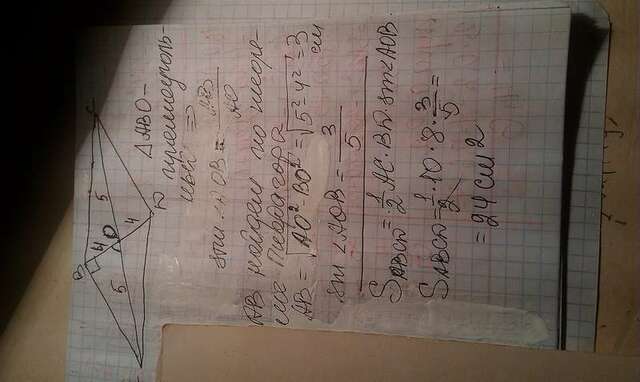 B
C
5
4
O
4
5
D
ΔABO –
прямоуголь-
ный ⇒
sin ∠AOB =
AB найдём по теоре-
ме Пифагора
AB = √AO² - BO² = √5² - 4² = 3
см
sin ∠AOB = 3/5
SABCD = 1/2 AC · BD · sin∠AOB
SABCD = 1/2 · 10 · 8 · 3/5 =
= 24 см²